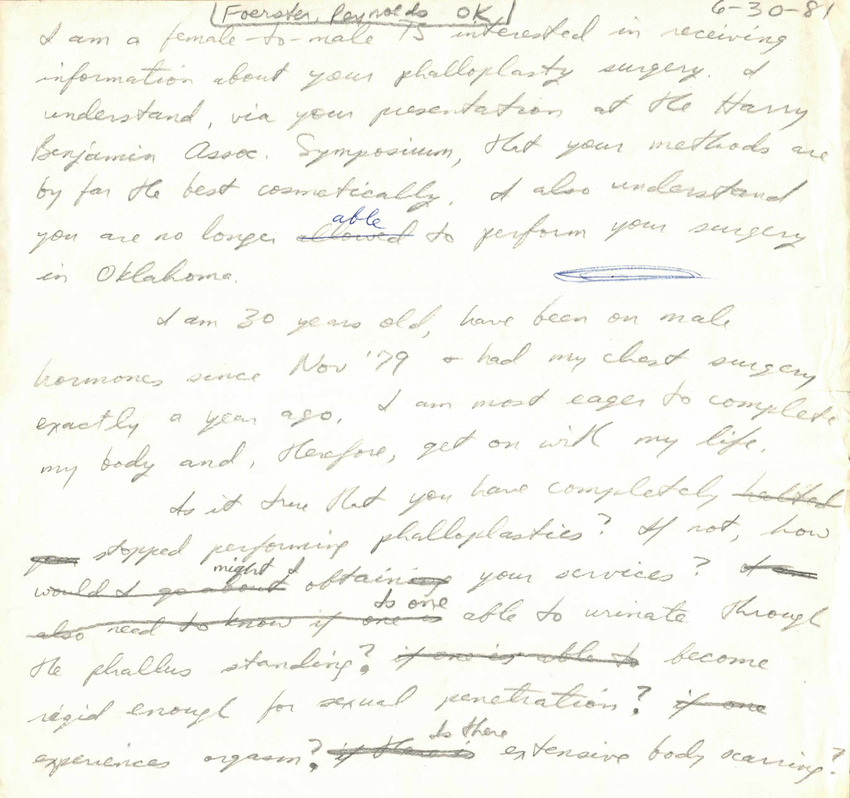 Foerster, Reynolds OK 6-30-81
I am a female-to-male TS interested in receiving
information about your phalloplasty surgery. I
understand, via your presentation at the Harry
Benjamin Assoc. Symposium, that your methods are
by far the best cosmetically. I also understand
able
you are no longer allowed to perform your surgery
in Oklahoma.
I am 30 years old, have been on male
hormones since Nov '79 + had my chest surgery
exactly a year ago. I am most eager to complete
my body and, therefore, get on with my life.
Is it true that you have completely halted
stopped performing phalloplasties? If not, how
might I
would I go about obtaining your services? I
Is one
also need to know if one is able to urinate through
the phallus standing? if one is able to become
rigid enough for sexual penetration? if one
Is there
experiences orgasm? if there is extensive body scarring?